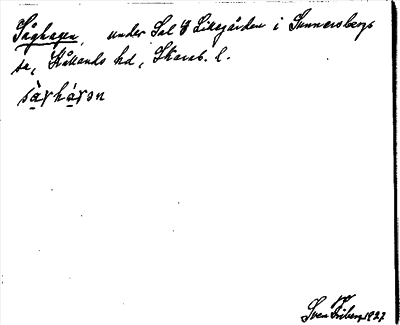 Såghagen, under Sal & Lillegården i Sunnersbergs
sn, Kållands hd, Skarab. l.
Sven Friberg 1927